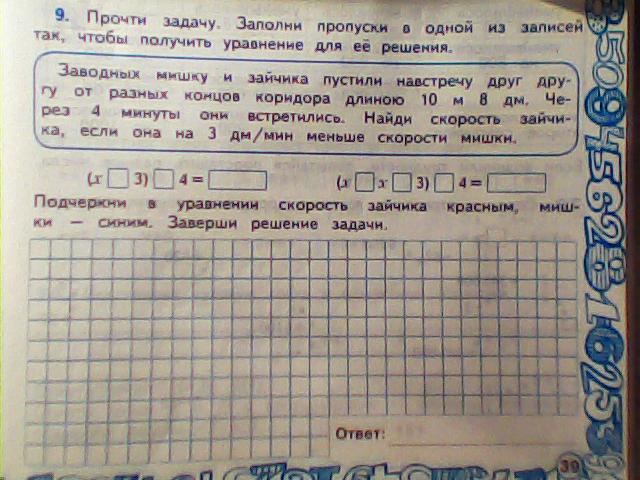 9. Прочти задачу. Заполни пропуски в одной из записей
так, чтобы получить уравнение для её решения.
Заводных мишку и зайчика пустили навстречу друг дру-
гу от разных концов коридора длиною 10 м 8 дм. Че-
рез 4 минуты они встретились. Найди скорость зайчи-
ка, если она на 3 дм/мин меньше скорости мишки.
(x □ 3) □ 4 = □ (x □ x □ 3) □ 4 = □
Подчеркни в уравнении скорость зайчика красным, миш-
ки — синим. Заверши решение задачи.
Ответ:
39